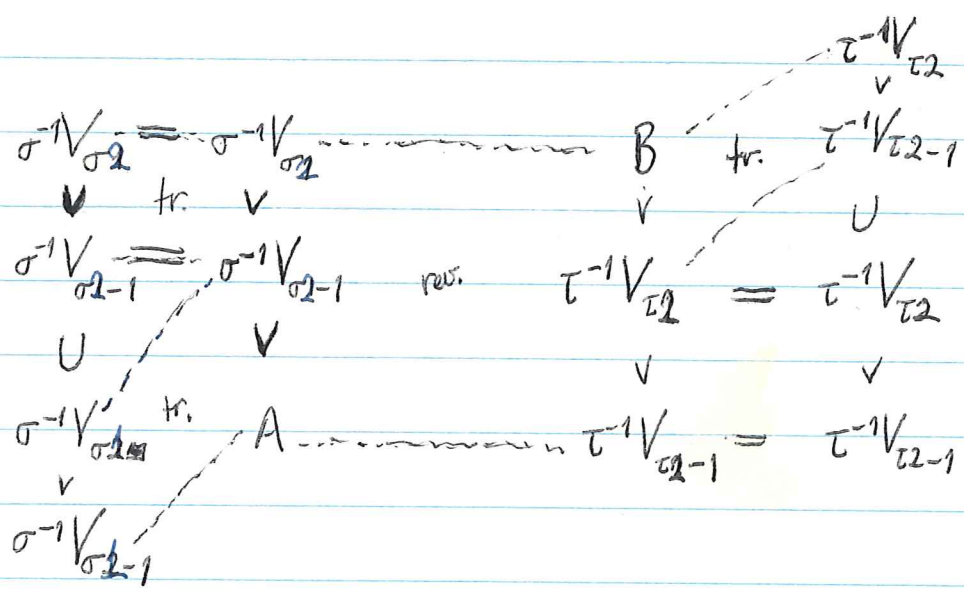 τ⁻¹V_τ2
∨
σ⁻¹V_σ2 = σ⁻¹V_σ2 B tr. τ⁻¹V_τ2-1
∨ tr. ∨ ∨ ∪
σ⁻¹V_σ2-1 = σ⁻¹V_σ2-1 rev. τ⁻¹V_τ2 = τ⁻¹V_τ2
∪ ∨ ∨ ∨
σ⁻¹V_σ1 tr. A τ⁻¹V_τ2-1 = τ⁻¹V_τ2-1
∨
σ⁻¹V_σ1-1